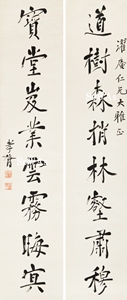 濯庵仁兄大雅正
道樹森梢林壑蕭穆
寶堂岌業雲霧晦冥